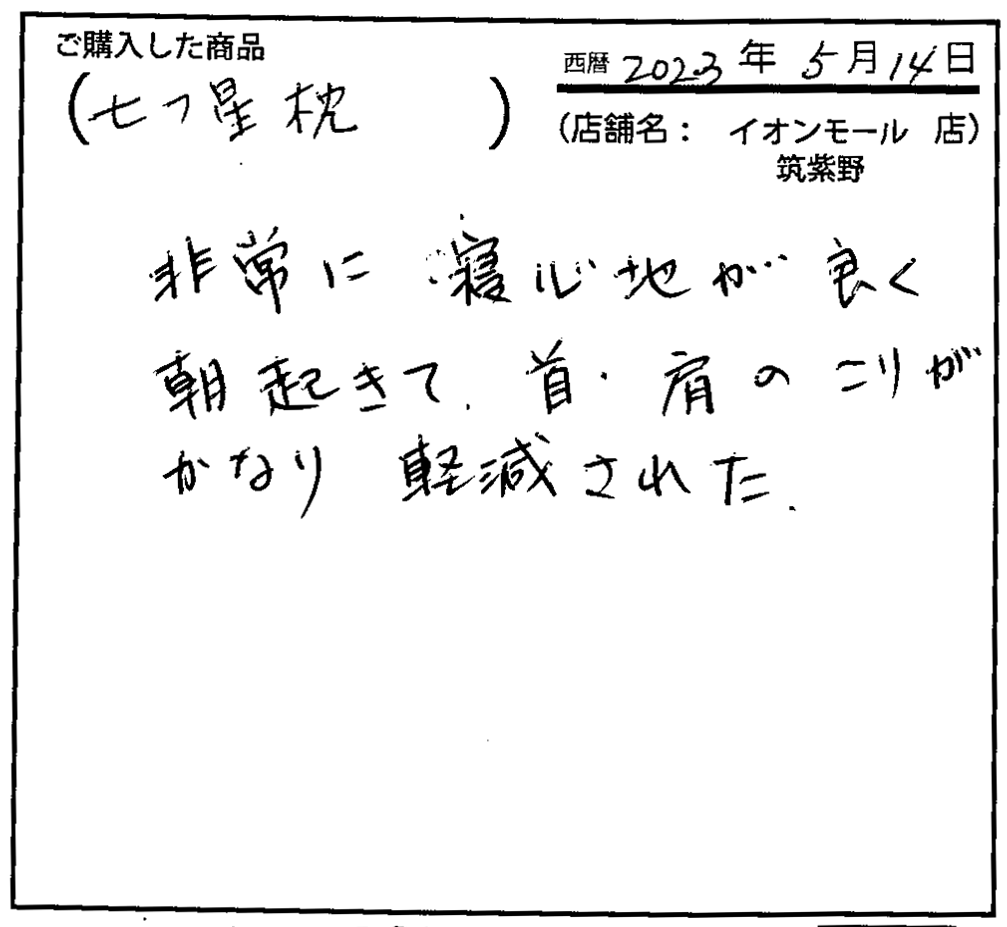 ご購入した商品
西暦 2023 年 5 月 14 日
(七つ星枕 )
(店舗名： イオンモール 店)
筑紫野
非常に 寝心地が 良く
朝起きて、首・肩のこりが
かなり 軽減された.